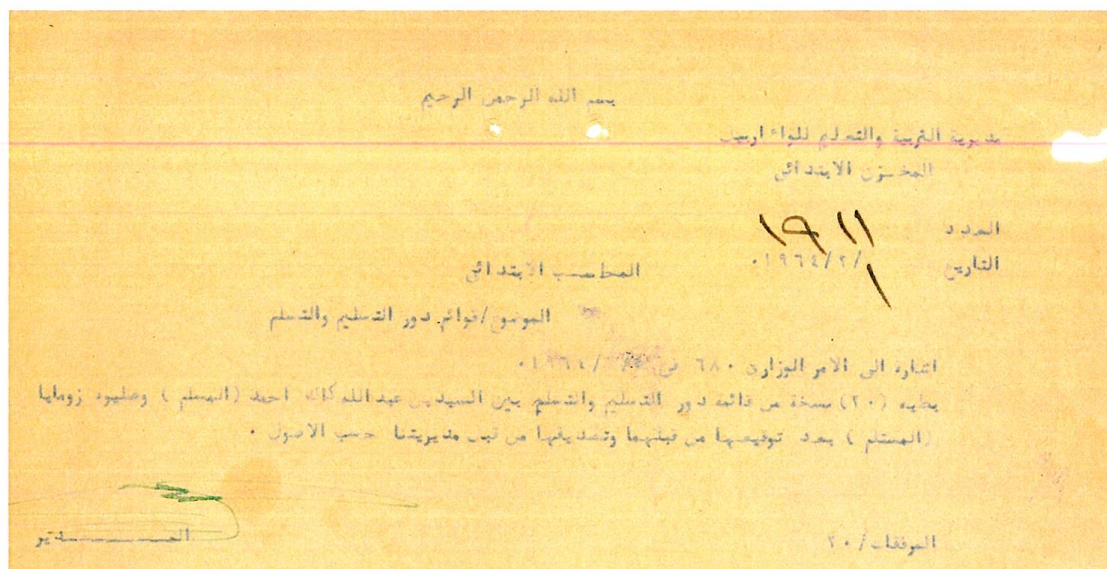 بسم الله الرحمن الرحيم
مديرية التربية والتعليم للواء اربيل
المخزن الابتدائي
العدد ١٩١١
التاريخ ١/٢/١٩٦٤٠
المحاسب الابتدائي
الموضوع/قوائم دور التسليم والتسلم
اشارة الى الامر الوزارى ٦٨٠ في / /١٩٦٤٠
بطيه (٢٠) نسخة من قائمة دور التسليم والتسلم بين السيدين عبدالله احمد (المسلم ) و زومايا
(المستلم ) بعد توقيعها من قبلهما وتصديقها من قبل مديريتنا حسب الاصول ٠
المرفقات/٢٠
المــدير